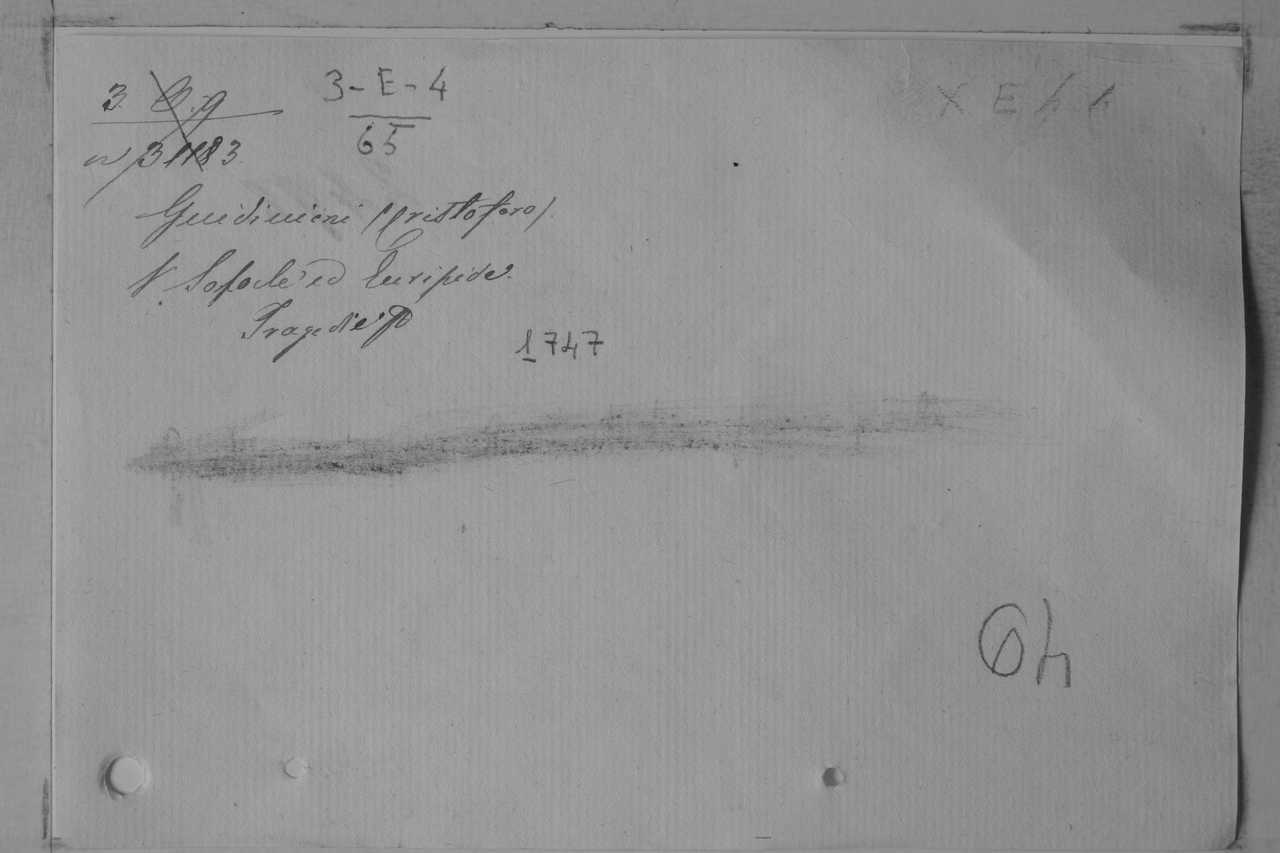 3. 3-E-4
65
3 1183
Guidiccioni (Cristoforo)
V. Sofocle ed Euripide.
Tragedie
1747
64